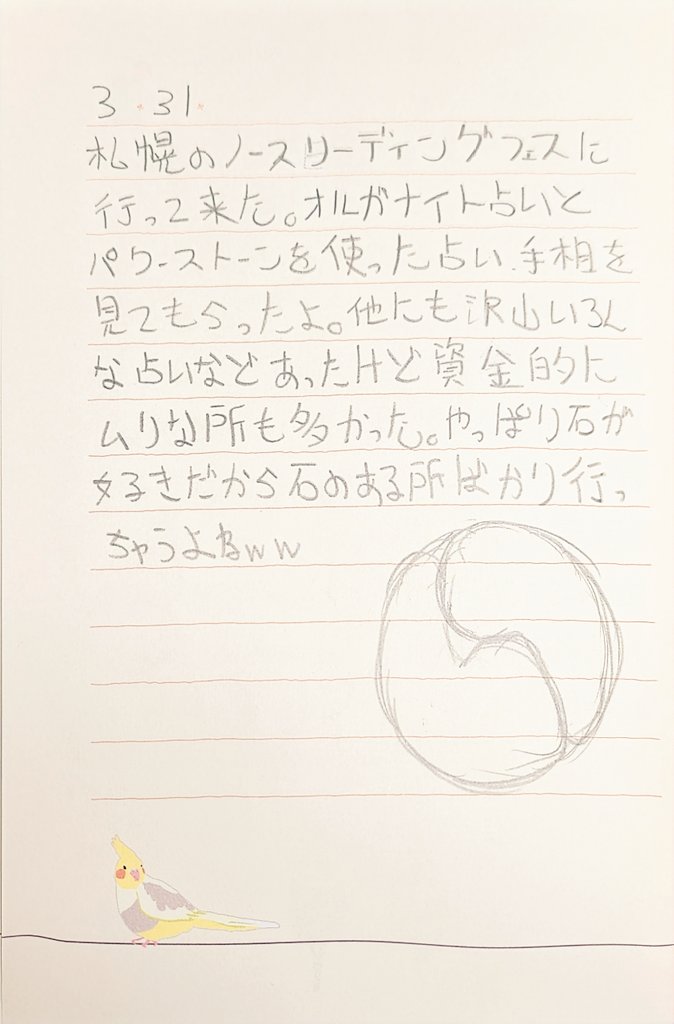 3・31・
札幌のノースリーディングフェスに
行って来た。オルガナイト占いと
パワーストーンを使った占い、手相を
見てもらったよ。他にも沢山いろん
な占いなどあったけど資金的に
ムリな所も多かった。やっぱり石が
好きだから石のある所ばかり行っ
ちゃうよねww